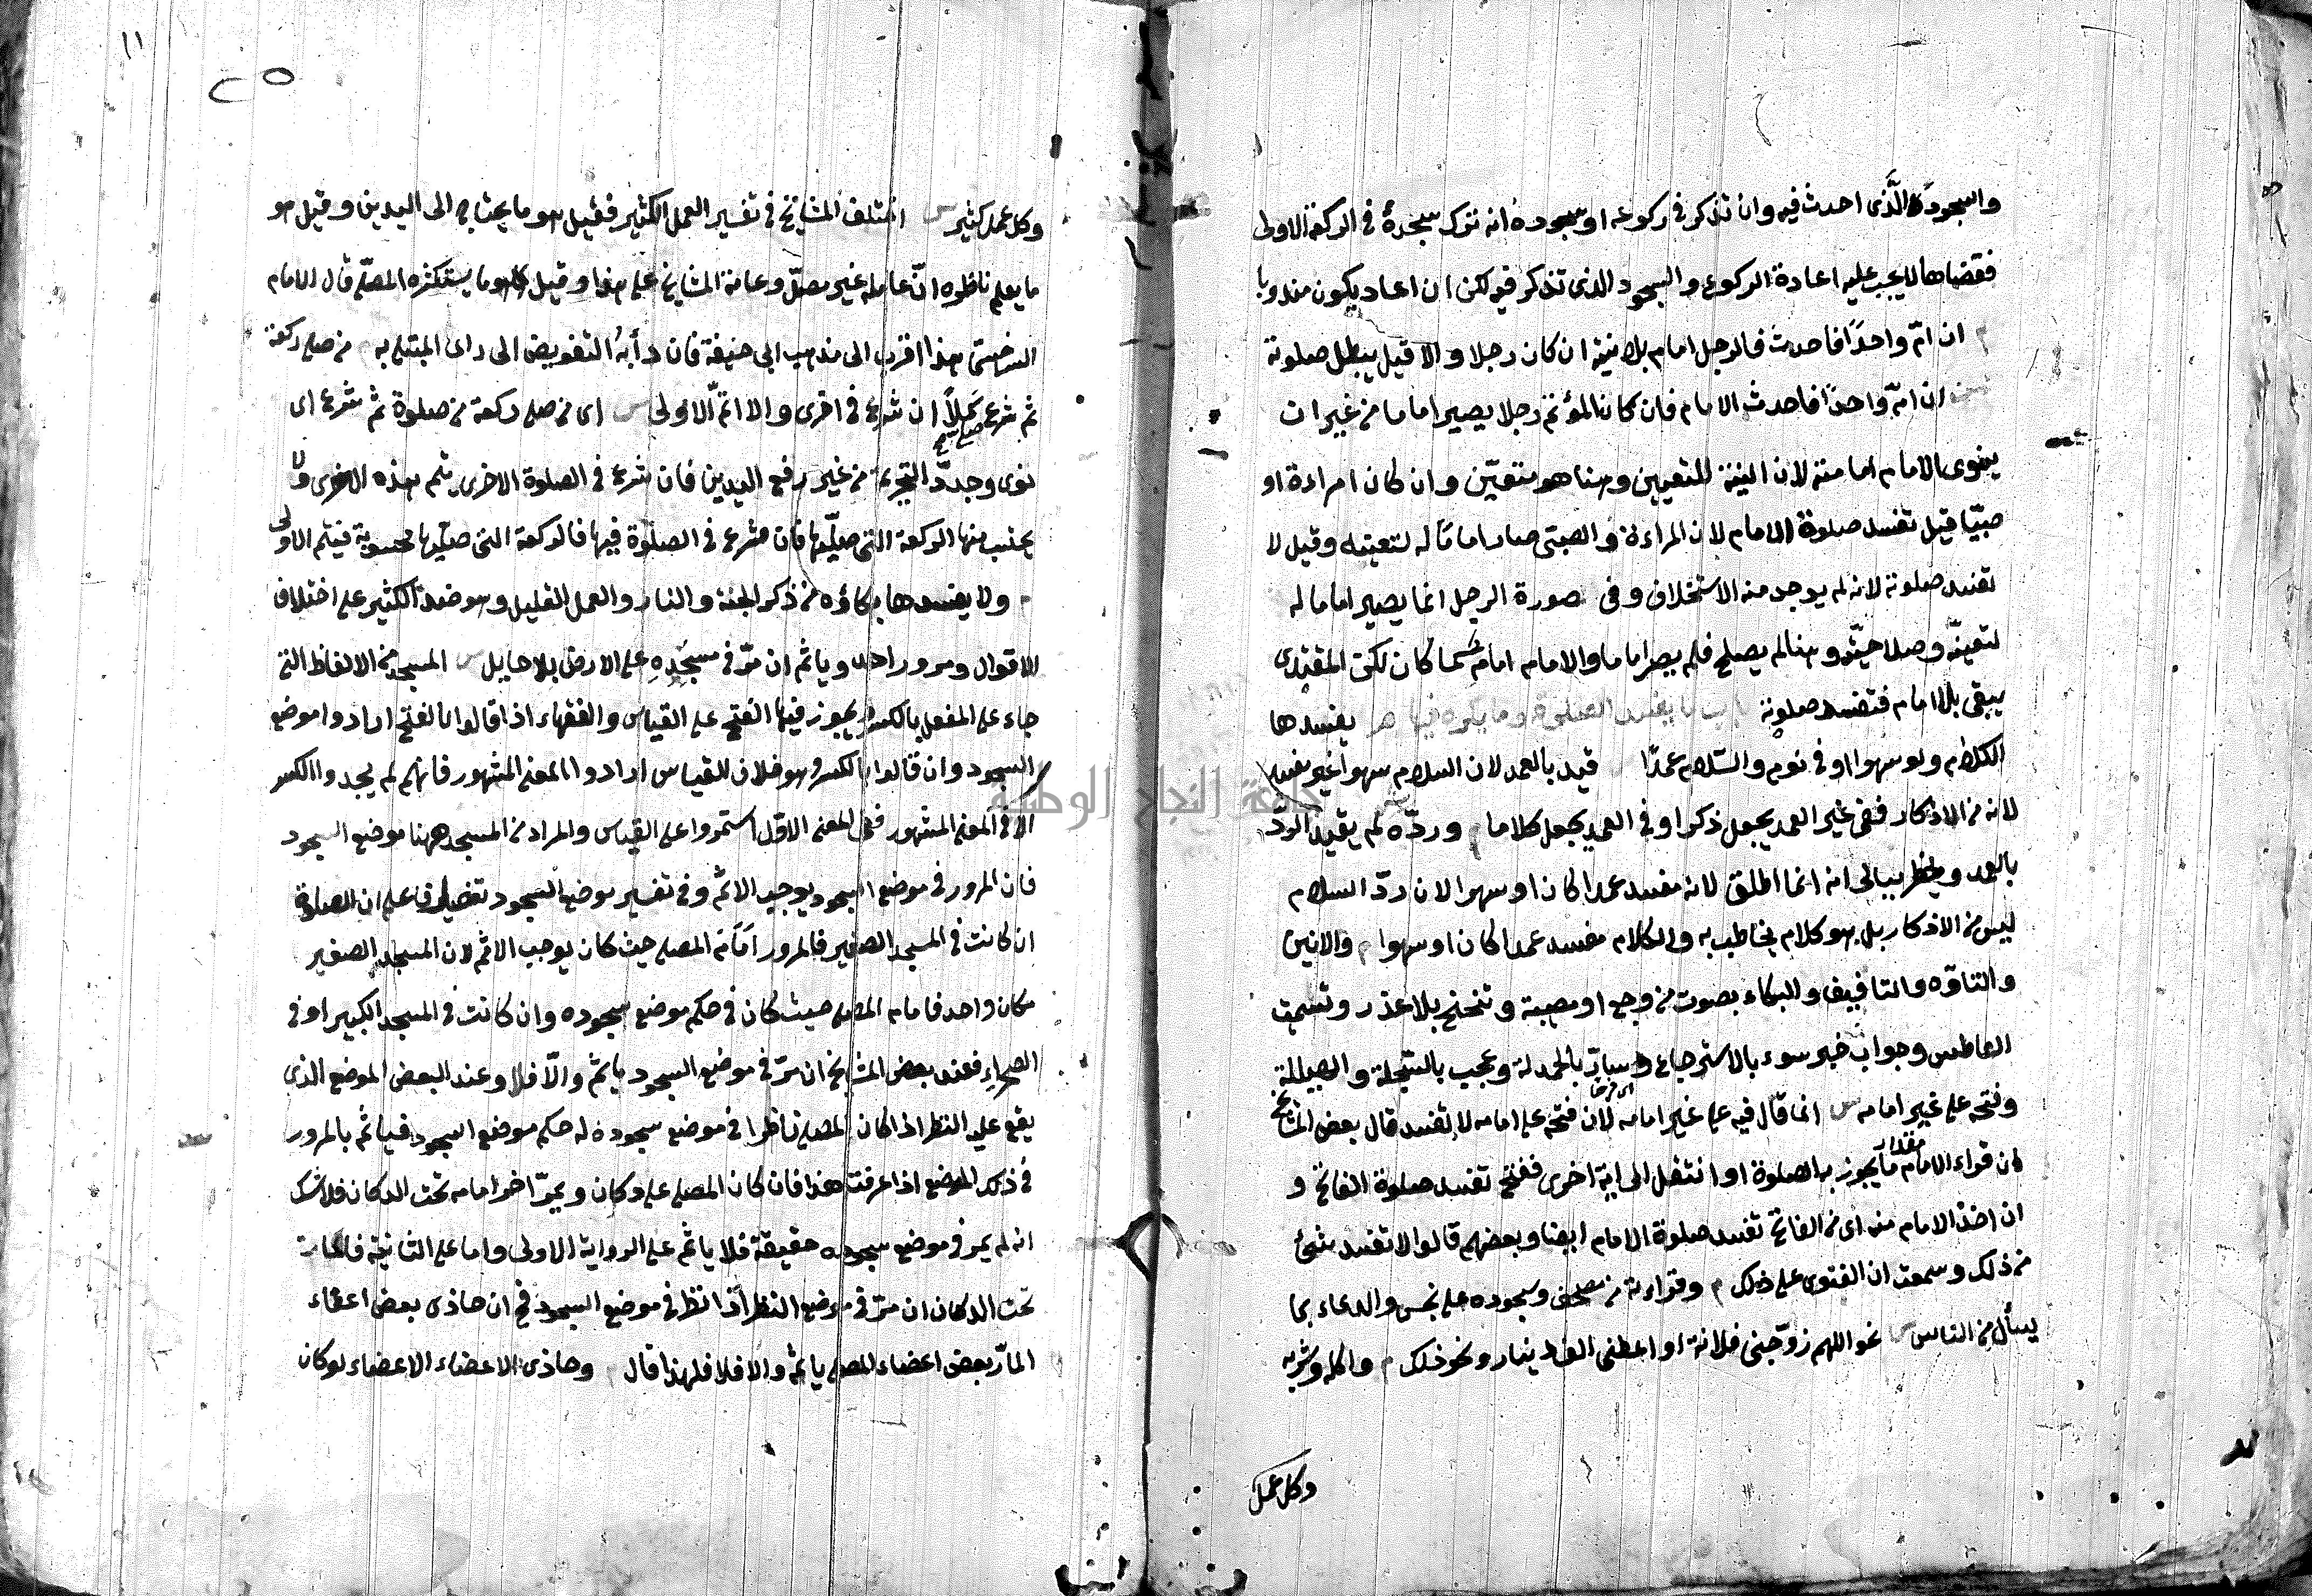 والسجود الَّذى احدث فيه وان تذكر فى ركوعه او سجوده انه ترك سجدة فى الركعة الاولى
فقضاها لا يجب عليه اعادة الركوع والسجود الذى تذكر فيه لكن ان اعاد يكون مندوبا
م ان امّ واحدًا فاحدث فالرجل امام بلا نية ان كان رجلا والا قيل يبطل صلوته
ان امّ واحدًا فاحدث الامام فان كان المؤتم رجلا يصير اماما من غير ان
ينوى الامام امامته لان النية للتعيين وهنا هو متعيّن وان كان امراءة او
صبيّا قيل تفسد صلوة الامام لان المراءة والصبىّ صار امامًا له لتعينه وقيل لا
تفسد صلوته لانه لم يوجد منه الاستخلاف وفى صورة الرجل انما يصير اماما له
لتعينّه وصلاحيّته وهنا لم يصلح فلم يصر اماما والامام امام كما كان لكن المقتدى
يبقى بلا امام فتفسد صلوته باب ما يفسد الصلوة وما يكره فيها هر يفسدها
الكلام ولو سهوا او فى نوم والسّلام عمدًا قيد بالعمد لان السلام سهوا غير مفسد
لانه من الاذكار ففى غير العمد يجعل ذكرا وفى العمد يجعل كلاما م وردّه لم يقيد الردّ
بالعمد ويخطر ببالى انه انما اطلق لانه مفسد عمدا كان او سهوا لان ردّ السلام
ليس من الاذكار بل هو كلام يخاطب به والكلام مفسد عمدا كان او سهوا م والانين
والتاوّه والتافيف والبكاء بصوت من وجع او مصيبة وتنحنح بلا عذر وتشميت
العاطس وجواب خبر سوء بالاسترجاع وسارّ بالحمدلة وعجب بالسّبحلة والهيللة
وفتحه على غير امامه س انما قال فيه على غير امامه لان فتحه على امامه لا تفسد قال بعض المشايخ
ان قراء الامام مقدار ما يجوز به الصلوة او انتقل الى اية اخرى ففتح تفسد صلوة الفاتح و
ان اخذ الامام منه اى من الفاتح تفسد صلوة الامام ايضا وبعضهم قالوا لا تفسد بشئ
من ذلك وسمعت ان الفتوى على ذلك م وقراءته من مصحف وسجوده على نجس والدعاء بما
يسأل من الناس س نحو اللهم زوّجنى فلانة او اعطنى الف دينار ونحو ذلك م واكله وشربه
وكل عمل
١١
٢٥
وكل عمل كثير س اختلف المشايخ فى تفسير العمل الكثير فقيل هو ما يحتاج الى اليدين وقيل هو
ما يعلم ناظره انّ عامله غير مصلّ وعامة المشايخ على هذا وقيل هو ما يستكثره المصلّى قال الامام
السرخسى هذا اقرب الى مذهب ابى حنيفة فان دأبهُ التفويض الى راى المبتلى به م من صلى ركعة
ثم شرع صلى كملاً ان شرع فى اخرى والا اتمّ الاولى س اى من صلى ركعة من صلوة ثم شرع اى
نوى وجدّد التحريمة من غير رفع اليدين فان شرع فى الصلوة الاخرى يتم هذه الاخرى ولا
يحتسب منها الركعة التى صلّيها فان شرع فى الصلوة فيها فالركعة التى صلّيها محسوبة فيتم الاولى
م ولا يفسدها بكاؤه من ذكر الجنة والنار والعمل القليل وهو ضد الكثير على اختلاف
الاقوال ومرور احد وياثم ان مرّ فى مسجده على الارض بلا حايل س المسجد من الالفاظ التى
جاء على المفعل بالكسر ويجوز فيها الفتح على القياس والفقهاء اذا قالوا بالفتح ارادوا موضع
السجود وان قالوا بالكسر وهو خلاف القياس ارادوا المعنى المشهور فانهم لم يجدوا الكسر
الا فى المعنى المشهور ففى المعنى الاوّل استمروا على القياس والمراد من المسجد ههنا موضع السجود
فان المرور فى موضع السجود يوجب الاثم وفى تفسير موضع السجود تفصيل فاعلم ان الصلوة
ان كانت فى المسجد الصغير فالمرور امام المصلى حيث كان يوجب الاثم لان المسجد الصغير
مكان واحد فامام المصلى حيث كان فى حكم موضع سجوده وان كانت فى المسجد الكبير او فى
الصحراء فعند بعض المشايخ ان مرّ فى موضع السجود ياثم والّا فلا وعند البعض الموضع الذى
يقع عليه النظر اذا كان المصلى ناظرا فى موضع سجوده له حكم موضع السجود فياثم بالمرور
فى ذلك الموضع اذا عرفت هذا فان كان المصلى على دكان ويمرّ اخر امامه تحت الدكان فلا شك
انه لم يمر فى موضع سجوده حقيقة فلا ياثم على الرواية الاولى واما على الثانية فالمار
تحت الدكان ان مرّ فى موضع النظر اذا نظر فى موضع السجود فح ان حاذى بعض اعضاء
المارّ بعض اعضاء المصلى ياثم والا فلا فلهذا قال م وحاذى الاعضاء الاعضاء لو كان
جامعة النجاح الوطنية